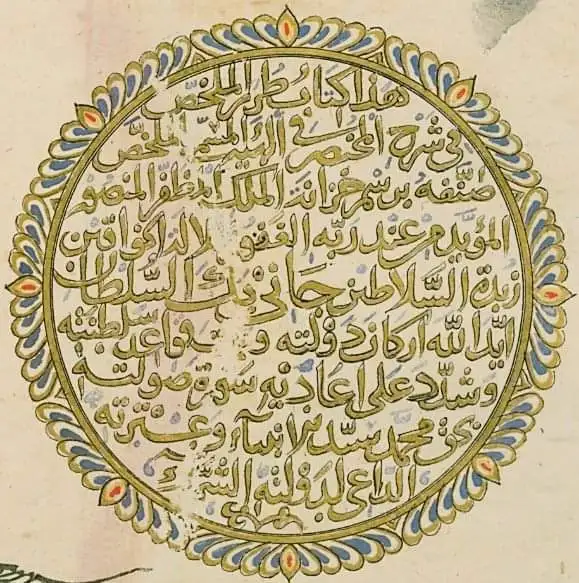 هذا كتاب طراز الملخص
في شرح المختصر في الهيئة المسمى بالملخص
صنفه برسم خزانة الملك المظفر المنصور
المؤيد من عند ربه الغفور جلال الدنيا والدين
زبدة السلاطين جاني بك السلطان
ابد الله اركان دولته و قواعد سلطنته
وشدد على اعاديه سورة صولته
بحق محمد سيد الانبياء وعترته
الداعي لدولته